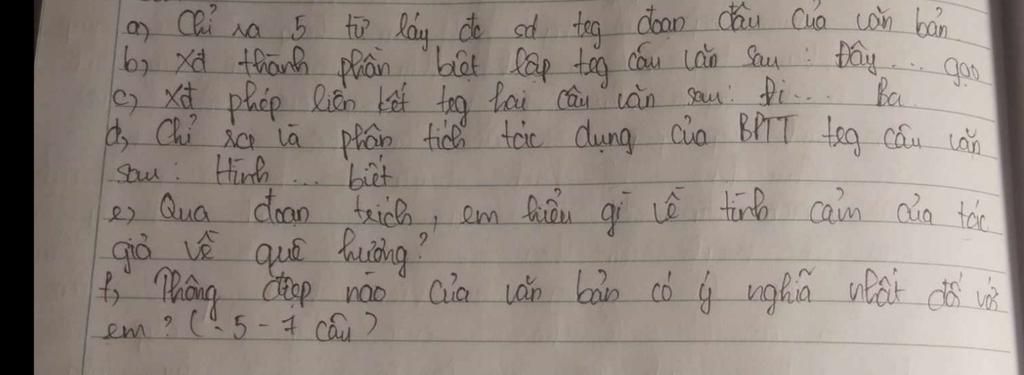 a) Chỉ ra 5 từ láy đc sd tọg đoạn đầu của văn bản
b) Xđ thành phần biệt lập tọg câu văn sau: Đây... gạo
c) Xđ phép liên kết tọg hai câu văn sau: Đi... Ba
d) Chỉ ra và phân tích tác dụng của BPTT tọg câu văn
sau: Hình... biết
e) Qua đoạn trích, em hiểu gì về tình cảm của tác
giả về quê hương?
f) Thông điệp nào của văn bản có ý nghĩa nhất đối với
em? (- 5 - 7 câu)